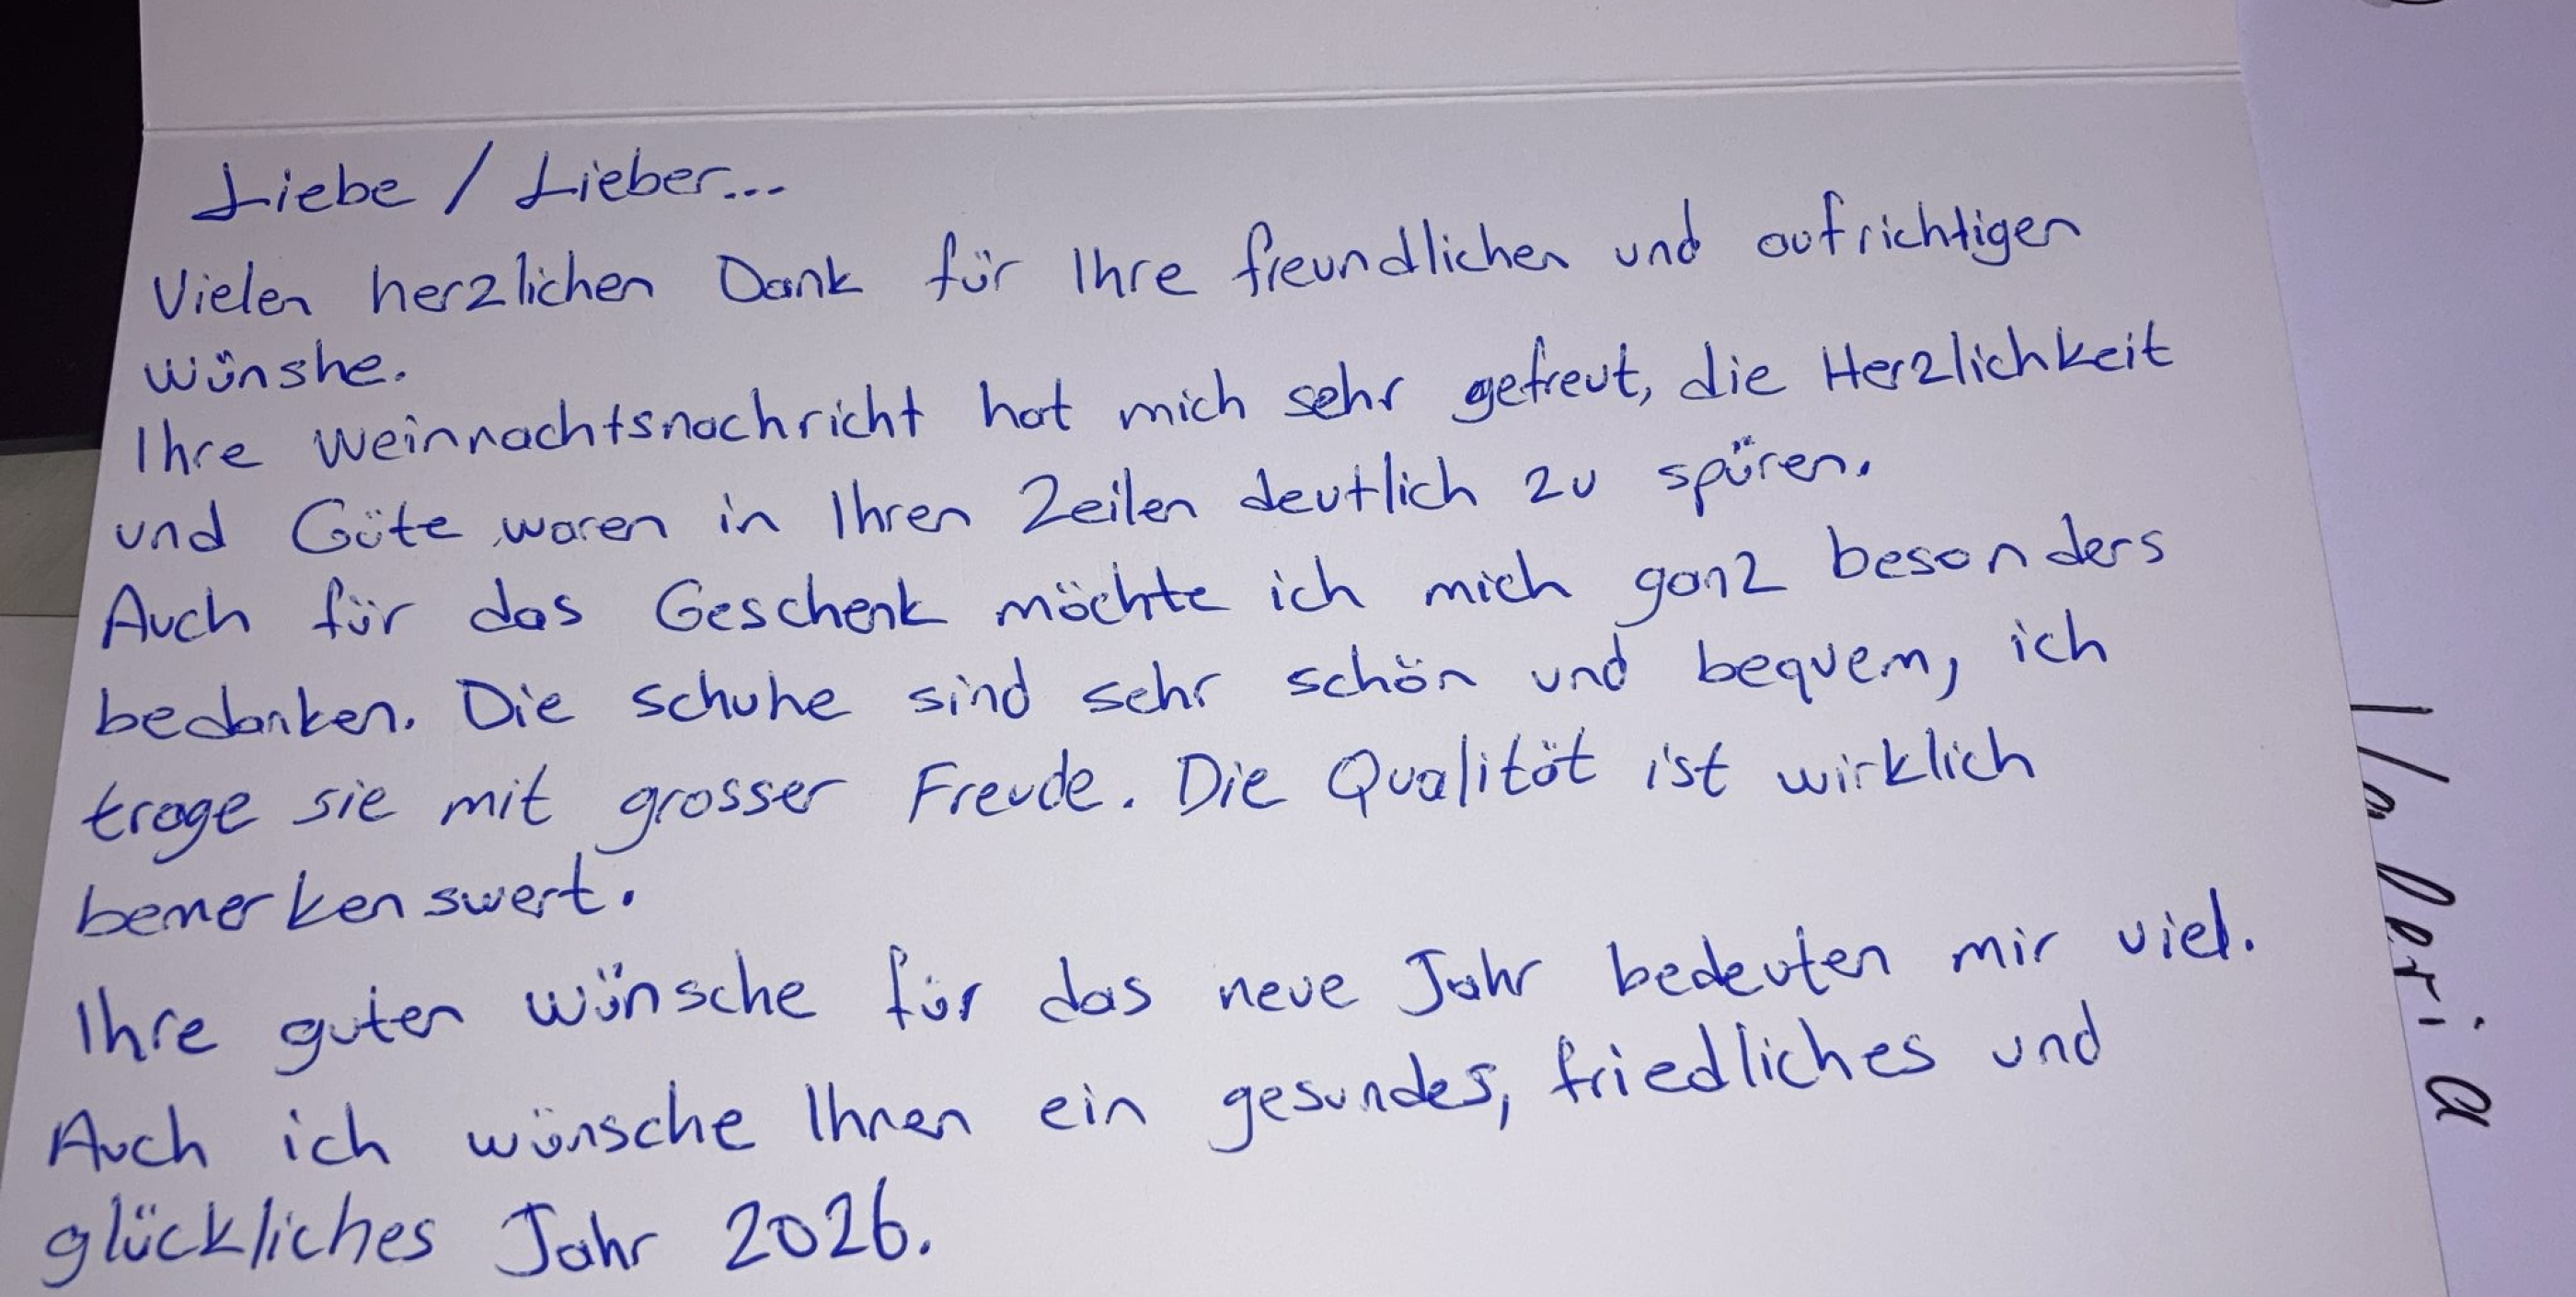 Liebe / Lieber...
Vielen herzlichen Dank für Ihre freundlichen und aufrichtigen
wünshe.
Ihre weinnachtsnachricht hat mich sehr gefreut, die Herzlichkeit
und Güte waren in Ihren Zeilen deutlich zu spüren.
Auch für das Geschenk möchte ich mich ganz besonders
bedanken. Die schuhe sind sehr schön und bequem, ich
trage sie mit grosser Freude. Die Qualität ist wirklich
bemerkenswert.
Ihre guten wünsche für das neue Jahr bedeuten mir viel.
Auch ich wünsche Ihnen ein gesundes, friedliches und
glückliches Jahr 2026.
Valeria